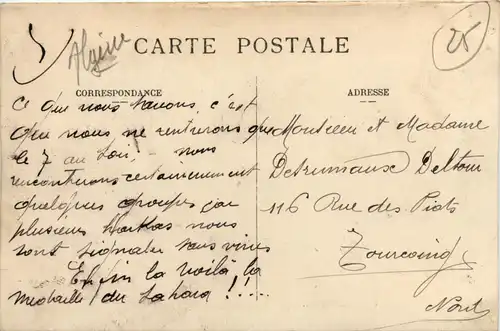 Algérie
25
CARTE POSTALE
CORRESPONDANCE
Ce que nous savons, c'est
que nous ne rentrerons que
le 7 au soir, nous
rencontrerons certainement
quelques groupes car
plusieurs nous
sont signalés
Enfin la voilà la
médaille du Sahara !!...
ADRESSE
Monsieur et Madame
Detrumaux Deltour
116 Rue des Piats
Tourcoing
Nord